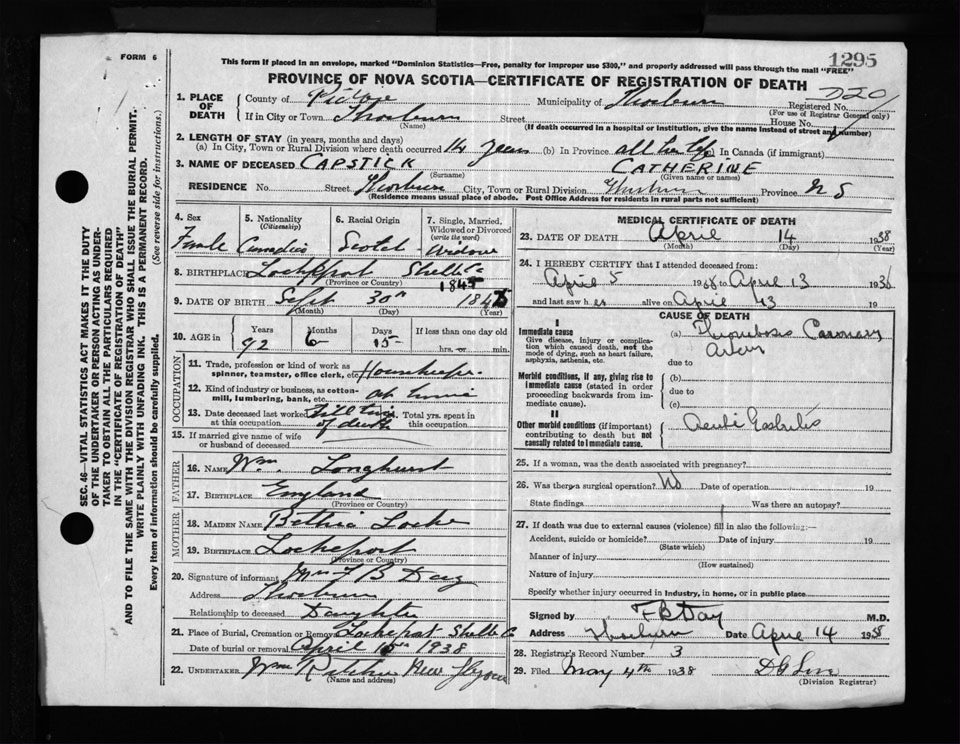 FORM 6
This form if placed in an envelope, marked "Dominion Statistics—Free, penalty for improper use $300," and properly addressed will pass through the mail "FREE"
1295
PROVINCE OF NOVA SCOTIA—CERTIFICATE OF REGISTRATION OF DEATH
D20
1. PLACE OF DEATH
County of Pictou Municipality of Thorburn Registered No.
(For use of Registrar General only)
If in City or Town Thorburn Street House No.
(Name) (If death occurred in a hospital or institution, give the name instead of street and number)
2. LENGTH OF STAY (in years, months and days)
(a) In City, Town or Rural Division where death occurred 14 years (b) In Province all her life (c) In Canada (if immigrant)
3. NAME OF DECEASED CAPSTICK CATHERINE
(Surname) (Given name or names)
RESIDENCE No. Street Thorburn City, Town or Rural Division Thorburn Province N S
(Residence means usual place of abode. Post Office Address for residents in rural parts not sufficient)
4. Sex Female
5. Nationality (Citizenship) Canadian
6. Racial Origin Scotch
7. Single, Married, Widowed or Divorced (write the word) Widow
8. BIRTHPLACE Lockeport Shelb Co
(Province or Country)
1845
9. DATE OF BIRTH Sept 30th 1845
(Month) (Day) (Year)
10. AGE in Years 92 Months 6 Days 15 If less than one day old hrs. or min.
OCCUPATION
11. Trade, profession or kind of work as spinner, teamster, office clerk, etc. Housekeeper
12. Kind of industry or business, as cotton-mill, lumbering, bank, etc. at home
13. Date deceased last worked at this occupation till time of death 14. Total yrs. spent in this occupation
15. If married give name of wife or husband of deceased
FATHER
16. NAME Wm. Longhurst
17. BIRTHPLACE England
(Province or Country)
MOTHER
18. MAIDEN NAME Bethia Locke
19. BIRTHPLACE Lockeport
(Province or Country)
20. Signature of informant Mrs F B Day
Address Thorburn
Relationship to deceased Daughter
21. Place of Burial, Cremation or Removal Lockeport Shelb Co
Date of burial or removal April 15th 1938
22. UNDERTAKER Wm Ritchie New Glasgow
(Name and address)
MEDICAL CERTIFICATE OF DEATH
23. DATE OF DEATH April 14 1938
(Month) (Day) (Year)
24. I HEREBY CERTIFY that I attended deceased from:
April 5 1938 to April 13 1938
and last saw her alive on April 13
CAUSE OF DEATH
I
Immediate cause
Give disease, injury or complication which caused death, not the mode of dying, such as heart failure, asphyxia, asthenia, etc.
(a) Thrombosis Coronary Artery
due to
Morbid conditions, if any, giving rise to immediate cause (stated in order proceeding backwards from immediate cause).
(b)
due to
(c)
II
Other morbid conditions (if important) contributing to death but not causally related to immediate cause.
Acute Gastritis
25. If a woman, was the death associated with pregnancy?
26. Was there a surgical operation? No Date of operation 19
State findings Was there an autopsy?
27. If death was due to external causes (violence) fill in also the following:—
Accident, suicide or homicide? Date of injury 19
(State which)
Manner of injury
(How sustained)
Nature of injury
Specify whether injury occurred in industry, in home, or in public place
Signed by F B Day M.D.
Address Thorburn Date April 14 1938
28. Registrar's Record Number 3
29. Filed May 4th 1938
(Division Registrar)
SEC. 46—VITAL STATISTICS ACT MAKES IT THE DUTY OF THE UNDERTAKER OR PERSON ACTING AS UNDERTAKER TO OBTAIN ALL THE PARTICULARS REQUIRED IN THE "CERTIFICATE OF REGISTRATION OF DEATH" AND TO FILE THE SAME WITH THE DIVISION REGISTRAR WHO SHALL ISSUE THE BURIAL PERMIT.
WRITE PLAINLY WITH UNFADING INK. THIS IS A PERMANENT RECORD.
Every item of information should be carefully supplied. (See reverse side for instructions.)